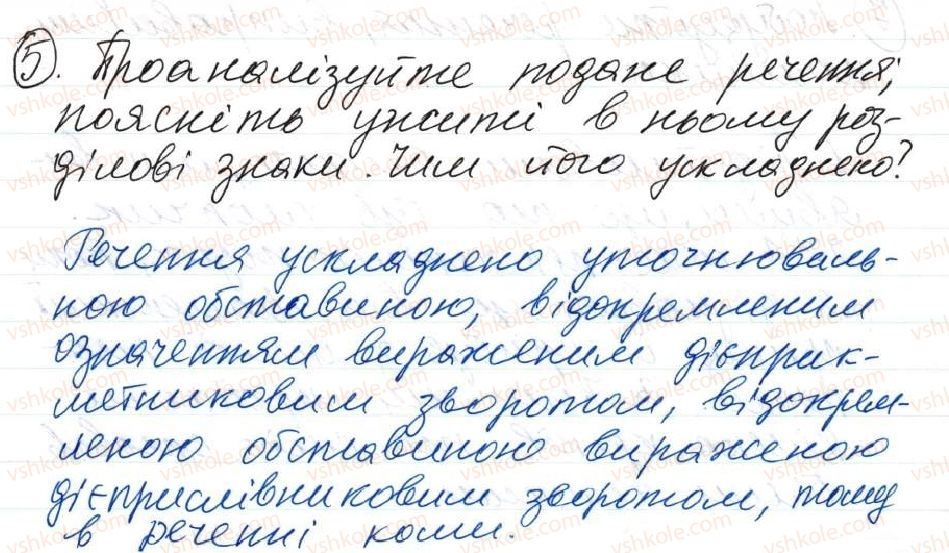 5. Проаналізуйте подане речення,
поясніть ужиті в ньому роз-
ділові знаки. Чим його ускладнено?
Речення ускладнено уточнюваль-
ною обставиною, відокремленим
означенням вираженим дієприк-
метниковим зворотом, відокрем-
леною обставиною вираженою
дієприслівниковим зворотом, тому
в реченні коми.